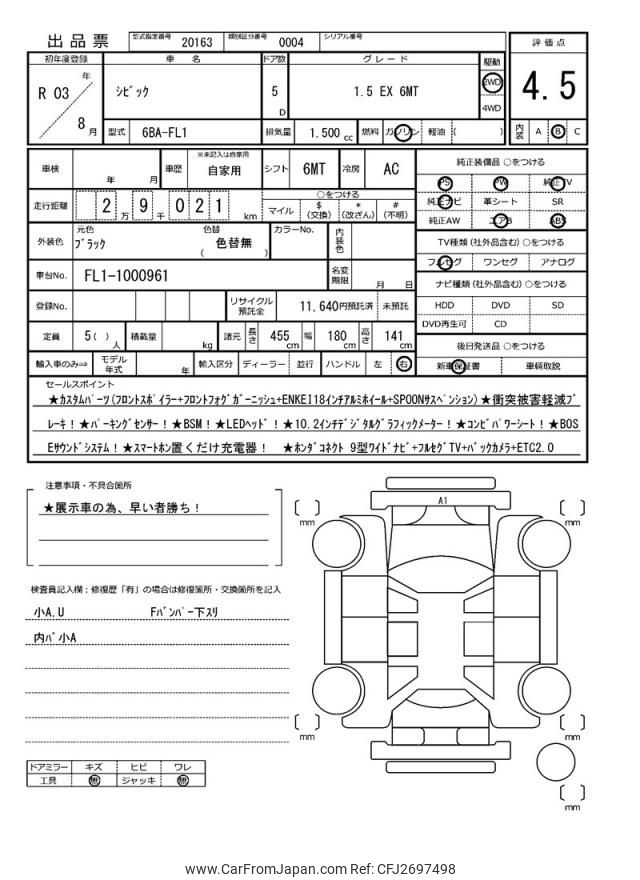 出品票 型式指定番号 20163 類別区分番号 0004 シリアル番号
初年度登録 車名 ドア数 グレード 駆動 評価点
R 03 年 8 月 シビック 5 D 1.5 EX 6MT 2WD 4WD 4.5
型式 6BA-FL1 排気量 1,500 cc 燃料 ガソリン 軽油 ( ) 内装 A B C
車検 年 月 車歴 ※未記入は自家用 自家用 シフト 6MT 冷房 AC
走行距離 2 万 9 千 0 2 1 km ○をつける マイル $ (交換) * (改ざん) # (不明)
外装色 元色 ブラック 色替 色替無 ( ) カラーNo. 内装色
車台No. FL1-1000961 名変期限 月 日
登録No. リサイクル預託金 11,640円預託済 未預託
定員 5 ( ) 人 積載量 kg 諸元 長さ 455 cm 幅 180 cm 高さ 141 cm
輸入車のみ⇒ モデル年式 年 輸入区分 ディーラー 並行 ハンドル 左 右
純正装備品 ○をつける
PS PW 純正TV
純正ナビ 革シート SR
純正AW エアB ABS
TV種類 (社外品含む) ○をつける
フルセグ ワンセグ アナログ
ナビ種類 (社外品含む) ○をつける
HDD DVD SD
DVD再生可 CD
後日発送品 ○をつける
新車保証書 車輌取説
セールスポイント
★カスタムパーツ(フロントスポイラー+フロントフォグガーニッシュ+ENKEI18インチアルミホイール+SPOONサスペンション)★衝突被害軽減ブ
レーキ！★パーキングセンサー！★BSM！★LEDヘッド！★10.2インチデジタルグラフィックメーター！★コンビパワーシート！★BOS
Eサウンドシステム！★スマートホン置くだけ充電器！ ★ホンダコネクト 9型ワイドナビ+フルセグTV+バックカメラ+ETC2.0
注意事項・不具合箇所
★展示車の為、早い者勝ち！
検査員記入欄：修復歴「有」の場合は修復箇所・交換箇所を記入
小A.U Fバンパー下スリ
内パ小A
ドアミラー キズ ヒビ ワレ
工具 無 ジャッキ 無
A1
mm
mm
mm
mm
mm
www.CarFromJapan.com Ref: CFJ2697498